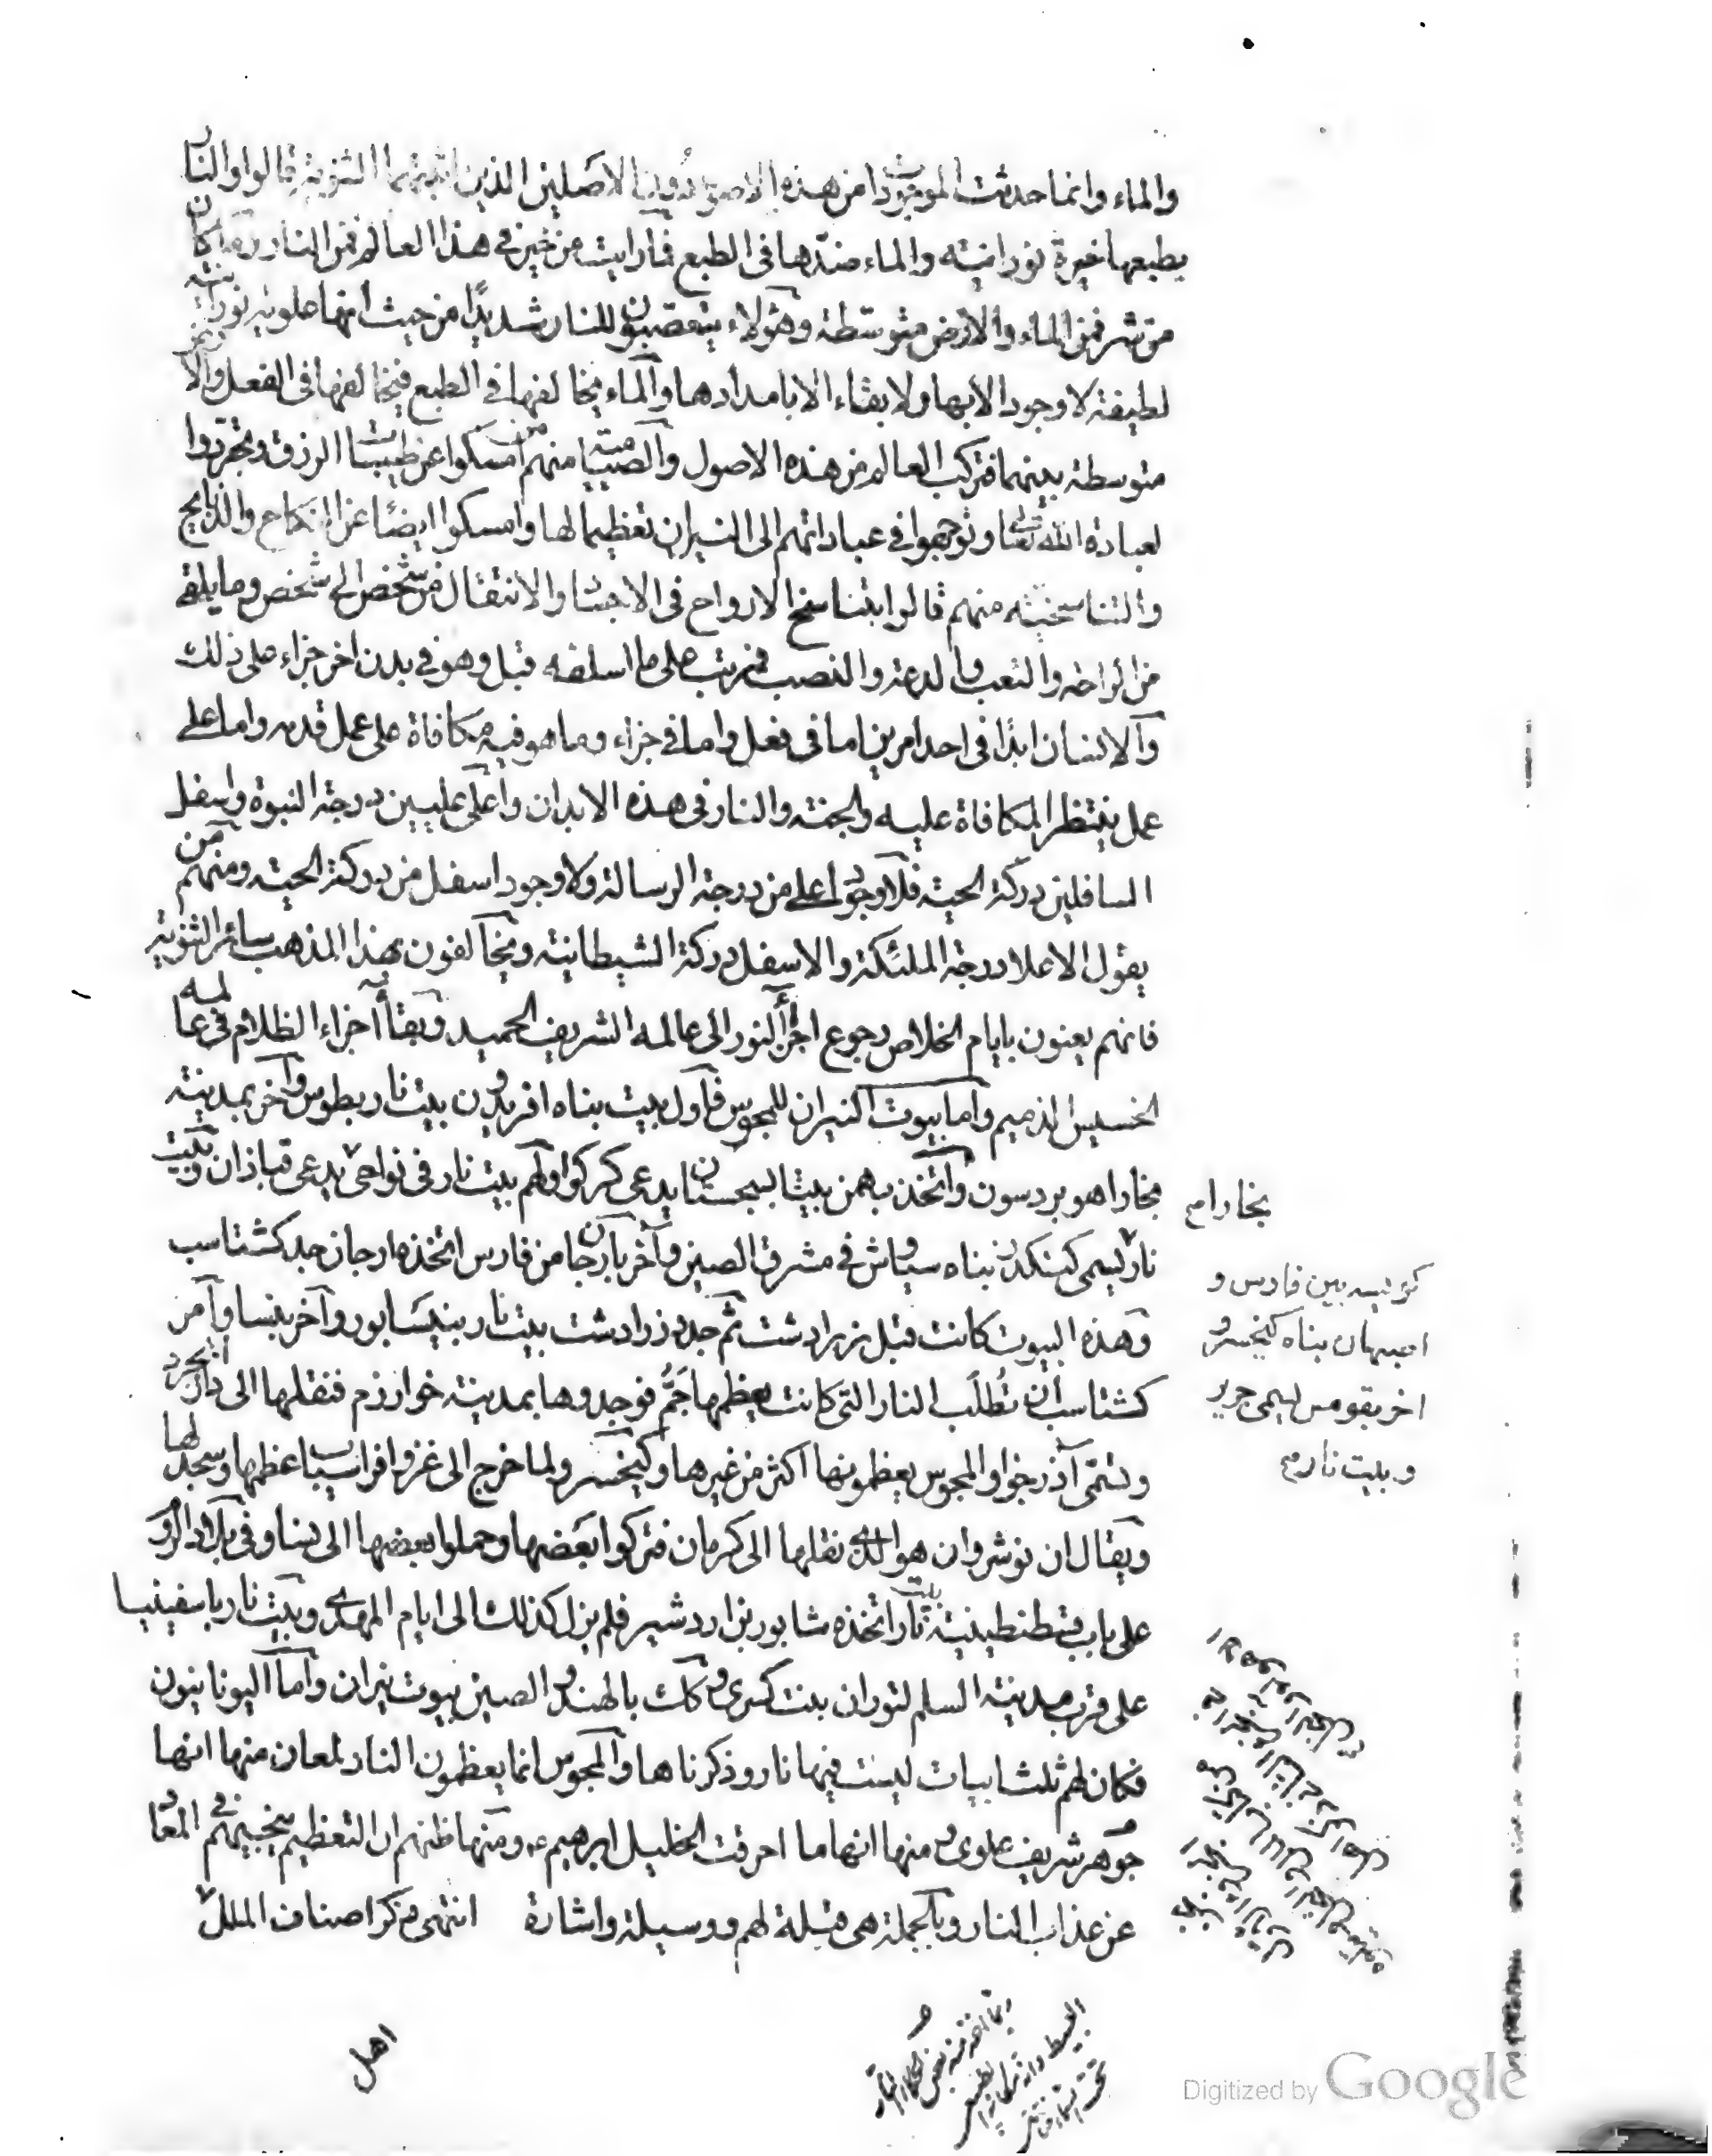 والماء وانما حدثت الموجودات من هذه الاصول دون الاصلين الذين اثبتهما الثنوية قالوا والنار
بطبعها خيرة نورانية والماء ضدها فى الطبع فما رايت من خير فى هذا العالم فمن النار وما كان
من شر فمن الماء والارض متوسطة وهؤلاء يتعصبون للنار شديدًا من حيث انها علوية نورانية
لطيفة لا وجود الا بها ولا بقاء الا بامدادها والماء يخالفها فى الطبع فيخالفها فى الفعل والارض
متوسطة بينهما فتركب العالم من هذه الاصول والصيامية منهم امسكوا عن طيبات الرزق وتجردوا
لعبادة الله تعالى وتوجهوا فى عباداتهم الى النيران تعظيما لها وامسكوا ايضًا عن النكاح والذبايح
والتناسخية منهم قالوا بتناسخ الارواح فى الاجساد والانتقال من شخص الى شخص وما يلقى
من الراحة والتعب والدعة والنصب فمرتب على ما اسلفه قبل وهو فى بدن اخر جزاء على ذلك
والانسان ابدًا فى احد امرين اما فى فعل واما فى جزاء وما هو فيه مكافاة على عمل قدمه واما على
عمل ينتظر المكافاة عليه والجنة والنار فى هذه الابدان واعلى عليين درجة النبوة واسفل
السافلين دركة الحية فلا وجود اعلى من درجة الرسالة ولا وجود اسفل من دركة الحية ومنهم من
يقول الاعلا درجة الملئكة والاسفل دركة الشيطانية ويخالفون بهذا المذهب سائر الثنوية
فانهم يعنون بايام الخلاص رجوع اجزأ النور الى عالمه الشريف الحميد وبقأ اجزاء الظلام فى عالمه
الخسيس الذميم واما بيوت النيران للمجوس فاول بيت بناه افريدون بيت نار بطوس وآخر بمدينة
بخارا هو بردسون واتخذ بهمن بيتا بسجستان يدعى كركوا ولهم بيت نار فى نواحى يدعى قباذان وبيت
نار يسمى كنكدز بناه سياوش فى مشرق الصين وآخر بارجان من فارس اتخذه ارجان جد كشتاسب
وهذه البيوت كانت قبل زرادشت ثم جدد زرادشت بيت نار بنيسابور وآخر بنسا وآمر
كشتاسب ان تُطلَب النار التى كانت يعظمها جَمّ فوجدوها بمدينة خوارزم فنقلها الى دارابجرد
وتسمى آذرخوا والمجوس يعظمونها اكثر من غيرها وكيخسرو لما خرج الى غزو افراسياب عظمها وسجد لها
ويقال ان نوشروان هو الذى نقلها الى كرمان فتركوا بعضها وحملوا بعضها الى نسا وفى بلاد الروم
على باب قسطنطينية بيت نار اتخذه شابور بن اردشير فلم يزل كذلك الى ايام المهدى وبيت نار باسفينيا
على قرب مدينة السلم لتوران بنت كسرى وكك بالهند والصين بيوت نيران واما اليونانيون
فكان لهم ثلثة ابيات ليست فيها نار وذكرناها والمجوس انما يعظمون النار لمعان منها انها
جوهر شريف علوى ومنها انها ما احرقت الخليل ابرهيم ومنها ظنهم ان التعظيم ينجيهم فى المعاد
عن عذاب النار وبالجملة هى قبلة لهم ووسيلة واشارة انتهى ذكر اصناف الملل
بخارا م
كونيسه بين فارس و
اصبهان بناه كيخسرو
اخر بقومس يسمى جرير
وبيت نار م
اهل
Digitized by Google